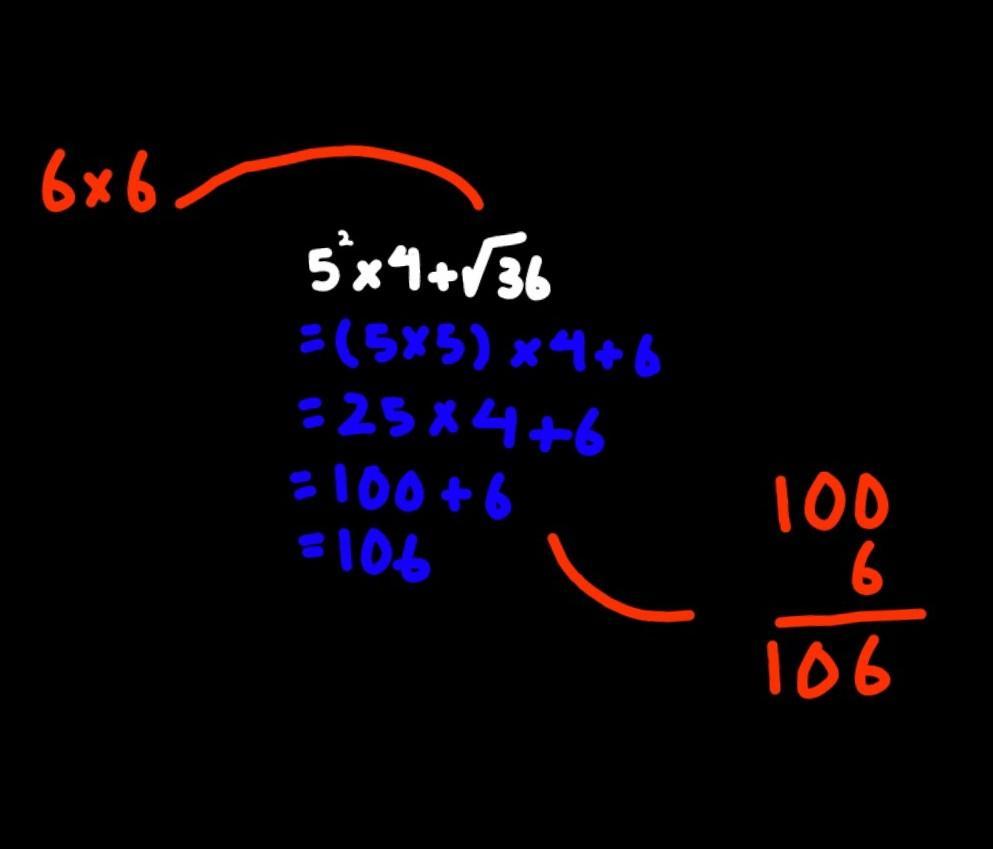 6×6
5²×4+√36
=(5×5)×4+6
=25×4+6
=100+6
=106
100
6
106